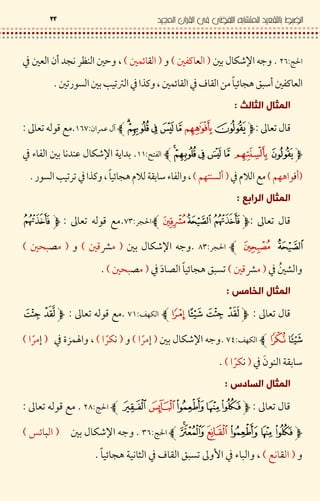 الضبط بالتقعيد للمتشابه اللفظي في القرآن المجيد
٢٣
الحج:٢٦ . وجه الإشكال بين ( العاكفين ) و ( القائمين ) ، وحين النظر نجد أن العين في
العاكفين أسبق هجائياً من القاف في القائمين ، وكذا في الترتيب بين السورتين .
المثال الثالث :
قال تعالى :﴿ يَقُولُونَ بِأَفْوَاهِهِم مَّا لَيْسَ فِي قُلُوبِهِمْ ﴾ آل عمران:١٦٧.مع قوله تعالى :
﴿ يَقُولُونَ بِأَلْسِنَتِهِم مَّا لَيْسَ فِي قُلُوبِهِمْ ﴾ الفتح:١١. بداية الإشكال عندنا بين الفاء في
(أفواههم ) مع اللام في ( ألسنتهم ) ، والفاء سابقة للام هجائياً ، وكذا في ترتيب السور .
المثال الرابع :
قال تعالى :﴿ فَأَخَذَتْهُمُ الصَّيْحَةُ مُشْرِقِينَ ﴾ الحجر:٧٣.مع قوله تعالى : ﴿ فَأَخَذَتْهُمُ
الصَّيْحَةُ مُصْبِحِينَ ﴾ الحجر:٨٣ .وجه الإشكال بين ( مشرقين ) و ( مصبحين )
والشينُ في ( مشرقين ) تسبق هجائياً الصادَ في ( مصبحين ) .
المثال الخامس :
قال تعالى : ﴿ لَقَدْ جِئْتَ شَيْئًا إِمْرًا ﴾ الكهف:٧١ .مع قوله تعالى : ﴿ لَقَدْ جِئْتَ
شَيْئًا نُكْرًا ﴾ الكهف:٧٤ .وجه الإشكال بين ( إمرًا ) و ( نكرًا ) ، والهمزة في ( إمرًا )
سابقة النونَ في ( نكرًا ) .
المثال السادس :
قال تعالى : ﴿ فَكُلُوا مِنْهَا وَأَطْعِمُوا الْبَائِسَ الْفَقِيرَ ﴾ الحج:٢٨ . مع قوله تعالى :
﴿ فَكُلُوا مِنْهَا وَأَطْعِمُوا الْقَانِعَ وَالْمُعْتَرَّ ﴾ الحج:٣٦ . وجه الإشكال بين ( البائس )
و ( القانع ) ، والباء في الأولى تسبق القاف في الثانية هجائياً .